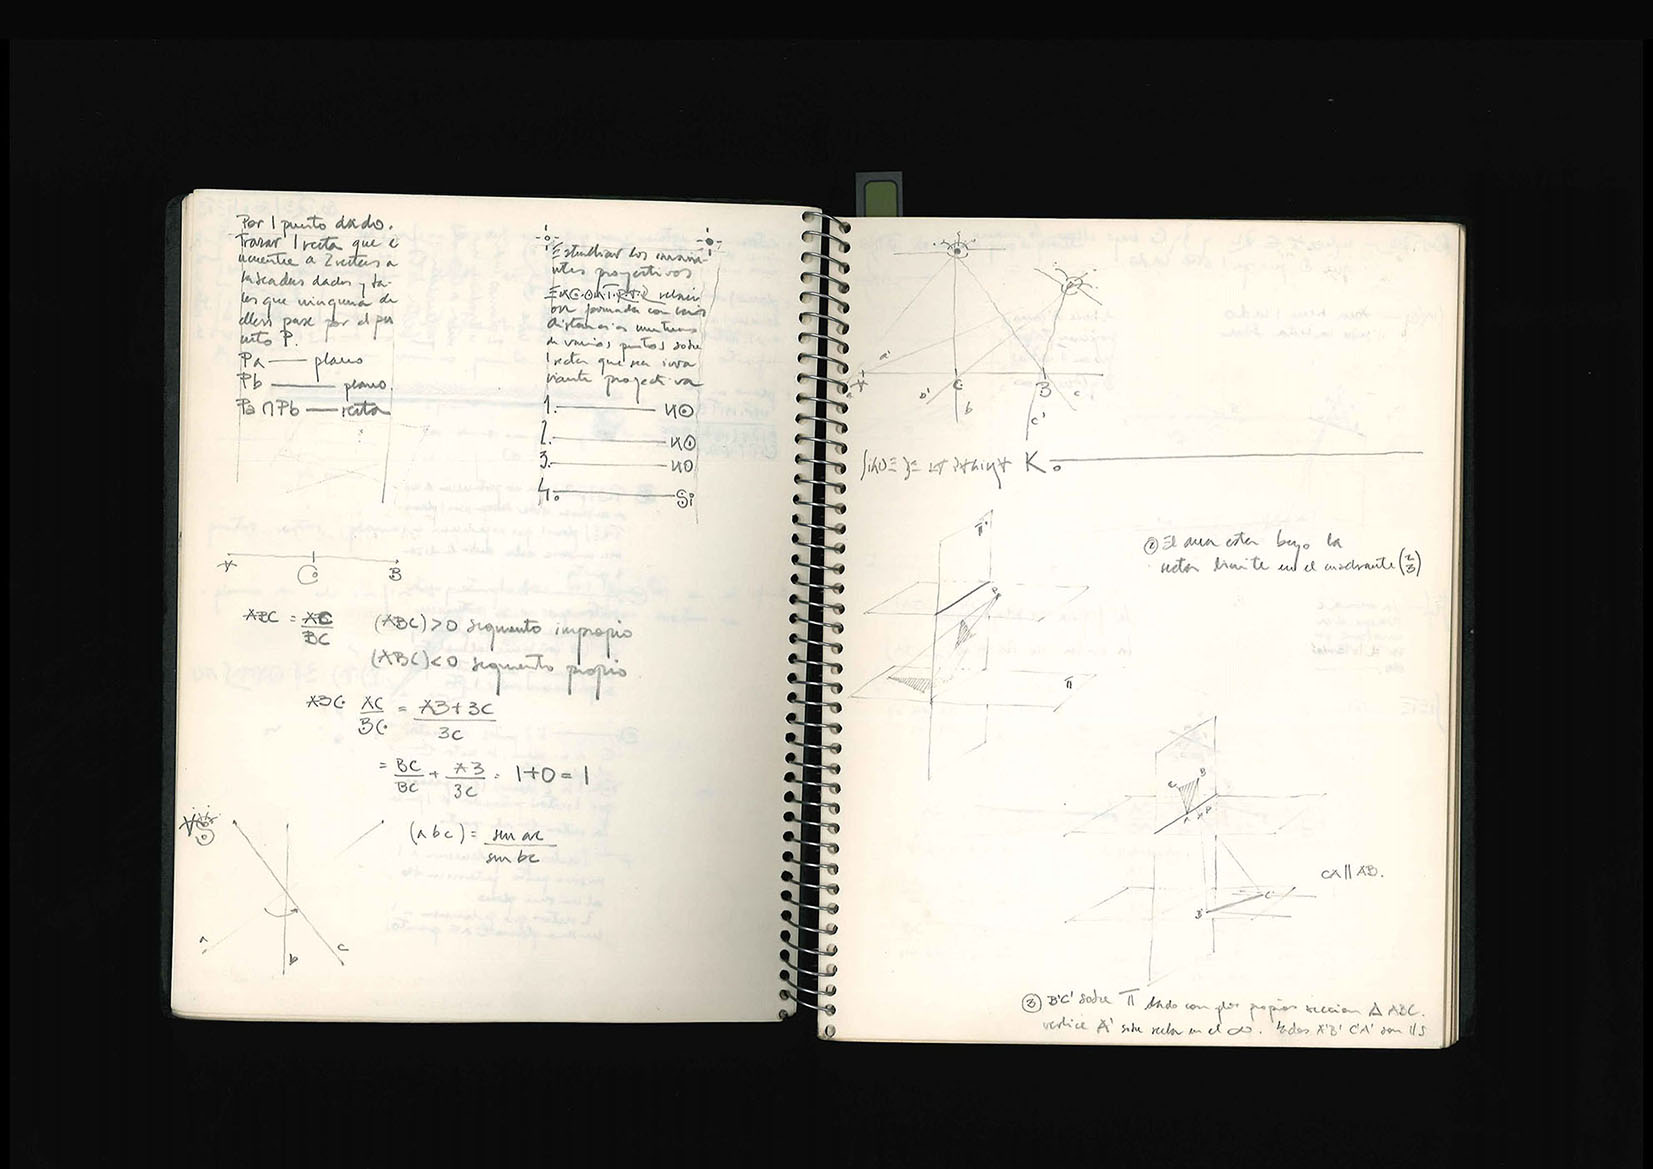 Por 1 punto dado.
Trazar 1 recta que e
ncuentre a 2 rectas a
dados y ta
les que ninguna de
ellas pase por el pu
nto P.
Pa — plano
Pb — plano.
Pa ∩ Pb — recta
Estudiar los invaria
ntes proyectivos
relaci
on formada con
distancias mutuas
de varios puntos sobre
1 recta que sea inva
riante proyectiva
1. — NO
2. — NO
3. — NO
4. — Si
A C B
ABC = AC / BC
(ABC) > 0 segmento impropio
(ABC) < 0 segmento propio
ABC. AC / BC = AB + BC / BC
= BC / BC + AB / BC = 1 + 0 = 1
(abc) = sen ac / sen bc
a b c
a' A b' C b B c
c'
K.
π'
② El area esta bajo la
recta limite en el cuadrante (2/3)
π
C B
A
CA || AB.
B' C'
③ B'C' sobre π dado con ptos propios seccion Δ ABC.
vertice A' sobre recta en el ∞. lados A'B' C'A' son //s